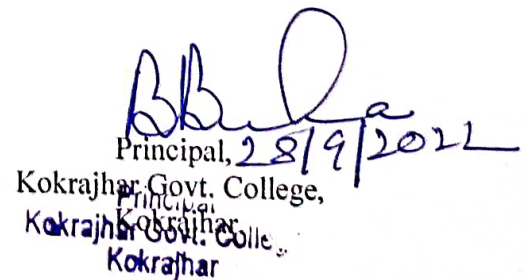 Principal, 28/9/2022
Kokrajhar Govt. College,
Kokrajhar
Principal
Kokrajhar Govt. Colle
Kokrajhar